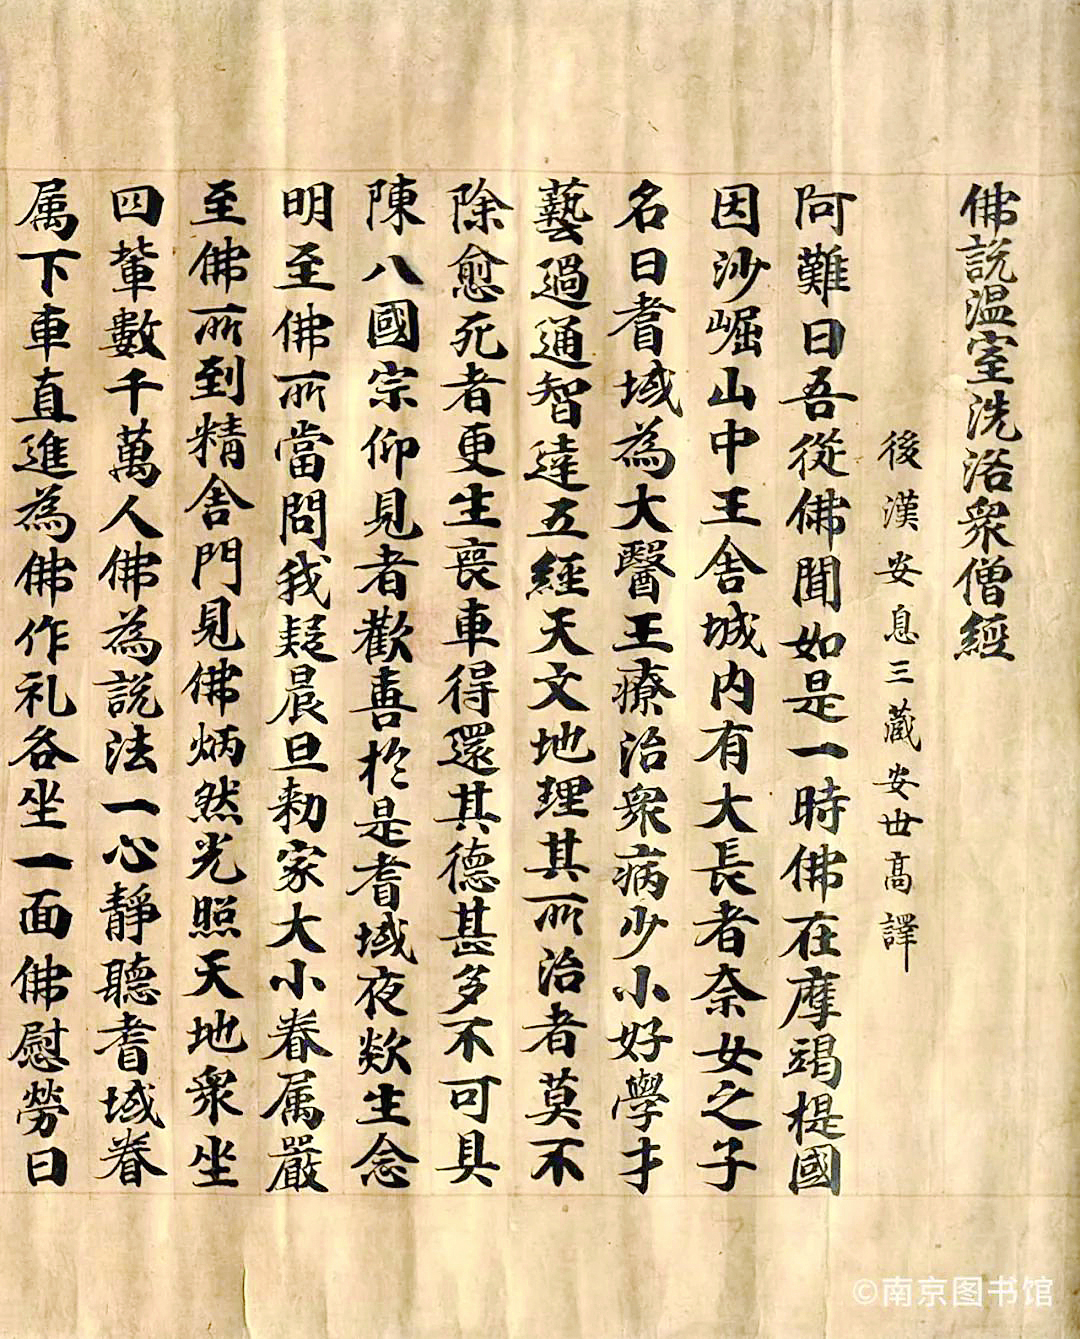 佛說温室洗浴衆僧經
後漢安息三藏安世高譯
阿難曰吾從佛聞如是一時佛在摩竭提國
因沙崛山中王舍城內有大長者柰女之子
名曰耆域為大醫王療治衆病少小好學才
藝過通智達五經天文地理其所治者莫不
除愈死者更生喪車得還其德甚多不可具
陳八國宗仰見者歡喜於是耆域夜欻生念
明至佛所當問我疑晨旦勑家大小眷属嚴
至佛所到精舍門見佛炳然光照天地衆坐
四輩數千萬人佛為說法一心靜聽耆域眷
属下車直進為佛作礼各坐一面佛慰勞曰
©南京图书馆